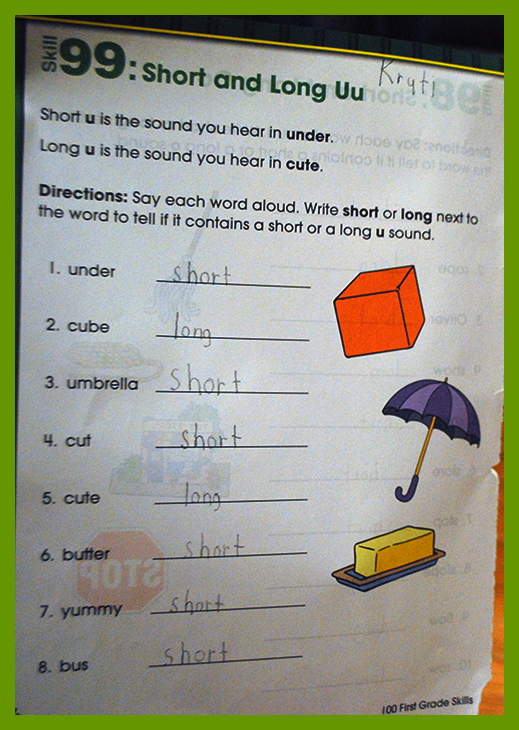 Skill 99: Short and Long Uu Kryti
Short u is the sound you hear in under.
Long u is the sound you hear in cute.
Directions: Say each word aloud. Write short or long next to
the word to tell if it contains a short or a long u sound.
1. under short
2. cube long
3. umbrella short
4. cut short
5. cute long
6. butter short
7. yummy short
8. bus short
100 First Grade Skills